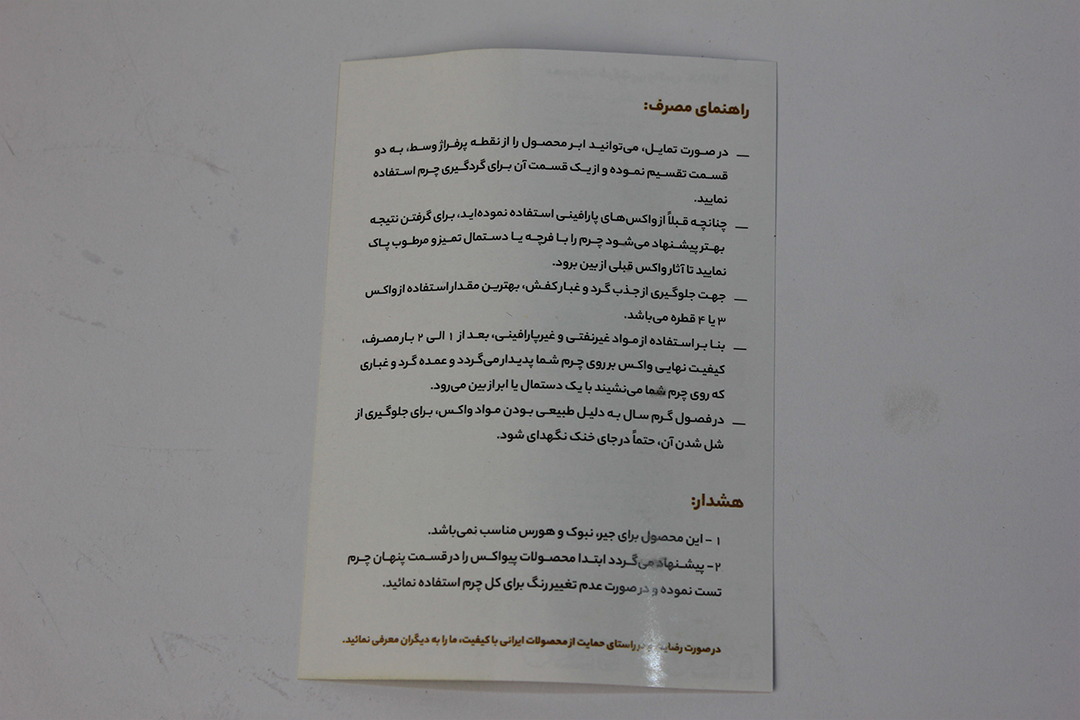 راهنمای مصرف:
— در صورت تمایل، می‌توانید ابر محصول را از نقطه پرفراژ وسط، به دو
قسمت تقسیم نموده و از یک قسمت آن برای گردگیری چرم استفاده
نمایید.
— چنانچه قبلاً از واکس‌های پارافینی استفاده نموده‌اید، برای گرفتن نتیجه
بهتر پیشنهاد می‌شود چرم را با فرچه یا دستمال تمیز و مرطوب پاک
نمایید تا آثار واکس قبلی از بین برود.
— جهت جلوگیری از جذب گرد و غبار کفش، بهترین مقدار استفاده از واکس
۳ یا ۴ قطره می‌باشد.
— بنا بر استفاده از مواد غیرنفتی و غیرپارافینی، بعد از ۱ الی ۲ بار مصرف،
کیفیت نهایی واکس بر روی چرم شما پدیدار می‌گردد و عمده گرد و غباری
که روی چرم شما می‌نشیند با یک دستمال یا ابر از بین می‌رود.
— در فصول گرم سال به دلیل طبیعی بودن مواد واکس، برای جلوگیری از
شل شدن آن، حتماً در جای خنک نگهدای شود.
هشدار:
۱ - این محصول برای جیر، نبوک و هورس مناسب نمی‌باشد.
۲- پیشنهاد می‌گردد ابتدا محصولات پیواکس را در قسمت پنهان چرم
تست نموده و در صورت عدم تغییر رنگ برای کل چرم استفاده نمائید.
در صورت رضایت و در راستای حمایت از محصولات ایرانی با کیفیت، ما را به دیگران معرفی نمائید.